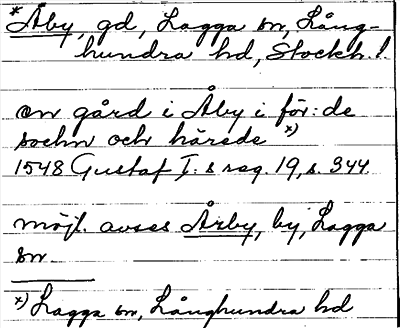 * Åby, gd, Lagga sn, Lång-
hundra hd, Stockh. l.
en gård i Åby i för:de
sochn och härede x)
1548 Gustaf I:s reg. 19, s. 344.
möjl. avses Årby, by, Lagga
sn
x) Lagga sn, Långhundra hd